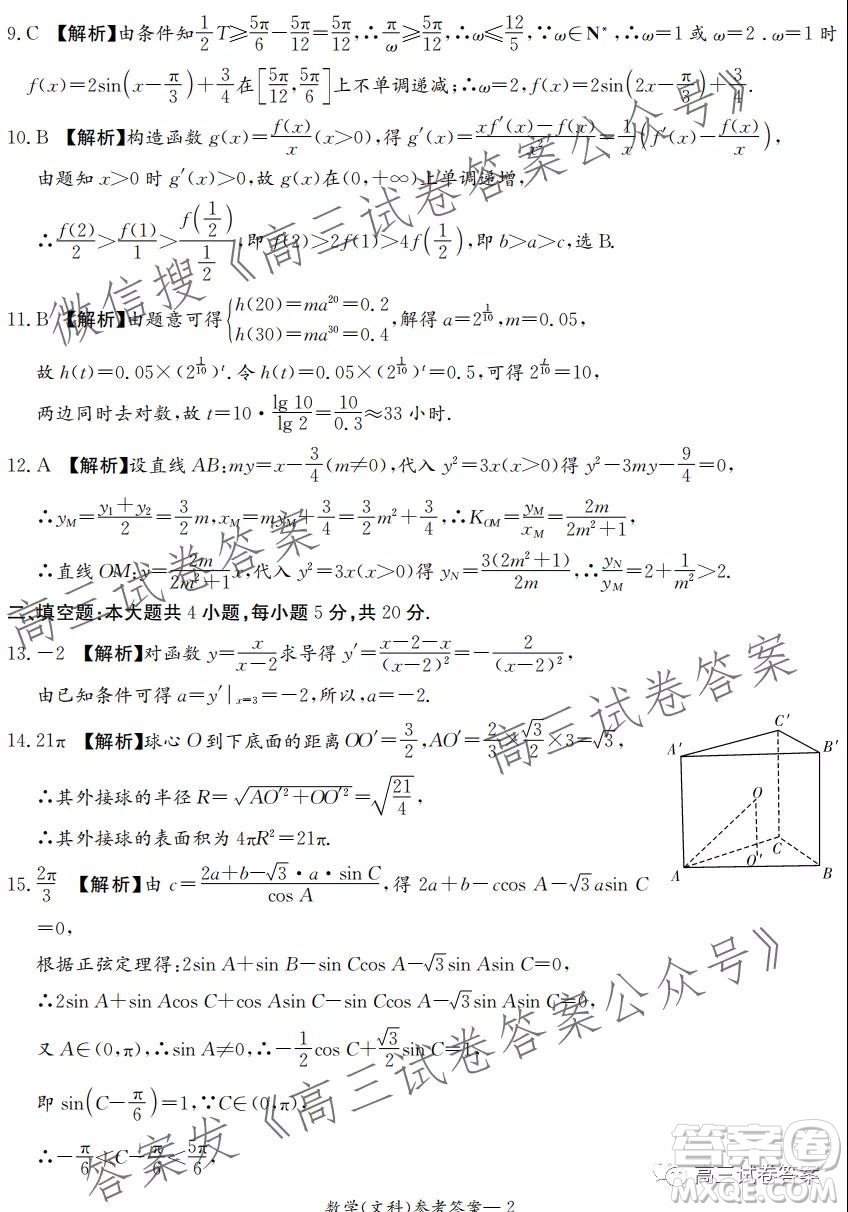 9.C 【解析】由条件知$\frac{1}{2}T≥\frac{5π}{6}-\frac{5π}{12}=\frac{5π}{12}$,∴$\frac{π}{ω}≥\frac{5π}{12}$,∴ω≤$\frac{12}{5}$,∵ω∈N*,∴ω=1或ω=2.ω=1时
f(x)=2sin(x-$\frac{π}{3}$)+$\frac{3}{4}$在[$\frac{5π}{12}$,$\frac{5π}{6}$]上不单调递减;∴ω=2,f(x)=2sin(2x-$\frac{π}{3}$)+$\frac{3}{4}$.
10.B 【解析】构造函数g(x)=$\frac{f(x)}{x}$(x>0),得g′(x)=$\frac{xf′(x)-f(x)}{x^2}$=$\frac{1}{x}$(f′(x)-$\frac{f(x)}{x}$),
由题知x>0时g′(x)>0,故g(x)在(0,+∞)上单调递增,
∴$\frac{f(2)}{2}$>$\frac{f(1)}{1}$>$\frac{f(\frac{1}{2})}{\frac{1}{2}}$,即f(2)>2f(1)>4f($\frac{1}{2}$),即b>a>c,选B.
11.B 【解析】由题意可得{h(20)=ma$^{20}$=0.2
h(30)=ma$^{30}$=0.4,解得a=2$^{\frac{1}{10}}$,m=0.05,
故h(t)=0.05×(2$^{\frac{1}{10}}$)$^t$.令h(t)=0.05×(2$^{\frac{1}{10}}$)$^t$=0.5,可得2$^{\frac{t}{10}}$=10,
两边同时去对数,故t=10·$\frac{lg 10}{lg 2}$=$\frac{10}{0.3}$≈33小时.
12.A 【解析】设直线AB:my=x-$\frac{3}{4}$(m≠0),代入y²=3x(x>0)得y²-3my-$\frac{9}{4}$=0,
∴y$_M$=$\frac{y_1+y_2}{2}$=$\frac{3}{2}$m,x$_M$=my$_M$+$\frac{3}{4}$=$\frac{3}{2}$m²+$\frac{3}{4}$,∴K$_{OM}$=$\frac{y_M}{x_M}$=$\frac{2m}{2m^2+1}$,
∴直线OM:y=$\frac{2m}{2m^2+1}$x,代入y²=3x(x>0)得y$_N$=$\frac{3(2m^2+1)}{2m}$,∴$\frac{y_N}{y_M}$=2+$\frac{1}{m^2}$>2.
二、填空题:本大题共4小题,每小题5分,共20分.
13.-2 【解析】对函数y=$\frac{x}{x-2}$求导得y′=$\frac{x-2-x}{(x-2)^2}$=-$\frac{2}{(x-2)^2}$,
由已知条件可得a=y′|$_{x=3}$=-2,所以,a=-2.
14.21π 【解析】球心O到下底面的距离OO′=$\frac{3}{2}$,AO′=$\frac{2}{3}$×$\frac{\sqrt{3}}{2}$×3=$\sqrt{3}$,
∴其外接球的半径R=$\sqrt{AO′^2+OO′^2}$=$\sqrt{\frac{21}{4}}$,
∴其外接球的表面积为4πR²=21π.
A′
C′
B′
O
O′
C
A
B
15.$\frac{2π}{3}$ 【解析】由c=$\frac{2a+b-\sqrt{3}·a·sin C}{cos A}$,得2a+b-ccos A-$\sqrt{3}$asin C
=0,
根据正弦定理得:2sin A+sin B-sin Ccos A-$\sqrt{3}$sin Asin C=0,
∴2sin A+sin Acos C+cos Asin C-sin Ccos A-$\sqrt{3}$sin Asin C=0,
又A∈(0,π),∴sin A≠0,∴-$\frac{1}{2}$cos C+$\frac{\sqrt{3}}{2}$sin C=1,
即sin(C-$\frac{π}{6}$)=1,∵C∈(0,π),
∴-$\frac{π}{6}$<C-$\frac{π}{6}$<$\frac{5π}{6}$,
数学(文科)参考答案—2
微信搜《高三试卷答案公众号》
高三试卷答案
高三试卷答案
答案发《高三试卷答案公众号》
高三试卷答案
答案卷
MXQE.COM